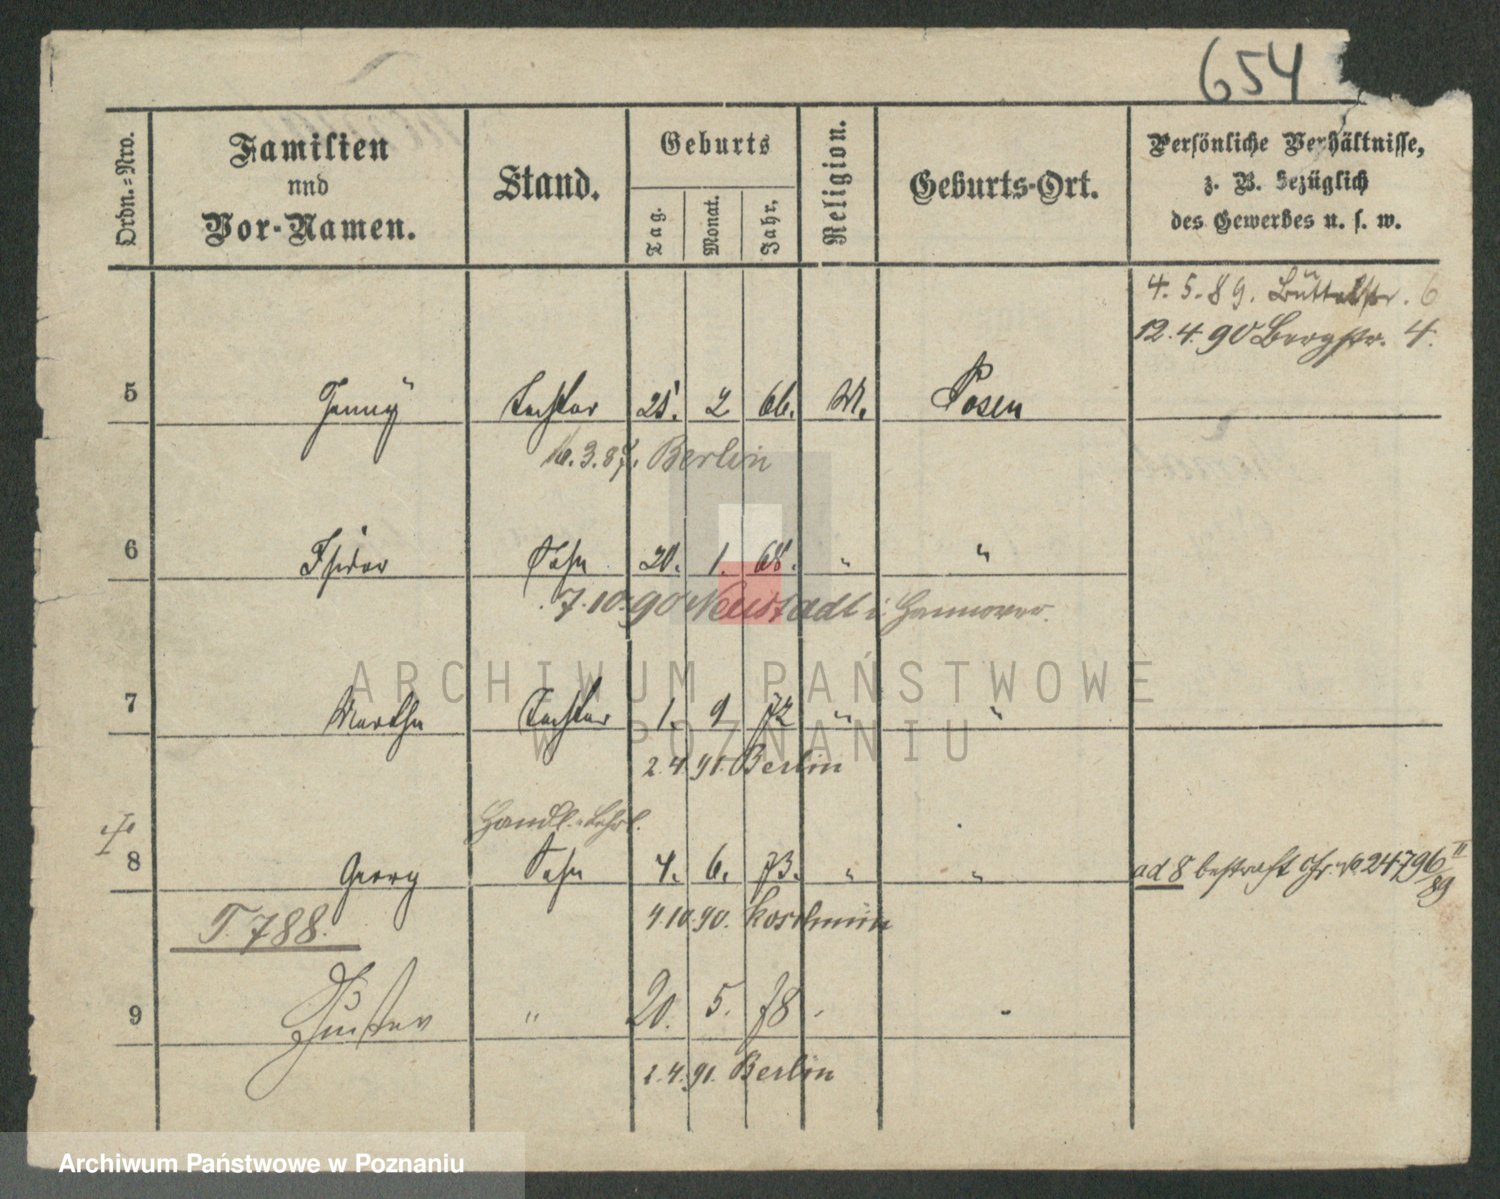 654
Ordn.=Nro.
Familien
und
Vor-Namen.
Stand.
Geburts
Tag.
Monat.
Jahr.
Religion.
Geburts-Ort.
Persönliche Verhältnisse,
z. B. bezüglich
des Gewerbes u. s. w.
4. 5. 89. Büttelstr. 6
12. 4. 90 Bergstr. 4.
5 Jenny Tochter 25. 2 66. M. Posen
16. 3. 87. Berlin
6 Isidor Sohn 20. 1. 68. " "
7. 10. 90 Neustadt i. Hannover.
7 Martha Tochter 1. 9 72 " "
2. 4. 91. Berlin
Handl. Lehrl.
8 Georg Sohn 4. 6. 73. " "
ad 8 bestraft 24796 II
89
4. 10. 90. Koschmin
T. 788.
9 Gustav " 20. 5. 78 " "
2. 4. 91. Berlin
ARCHIWUM PAŃSTWOWE
W POZNANIU
Archiwum Państwowe w Poznaniu